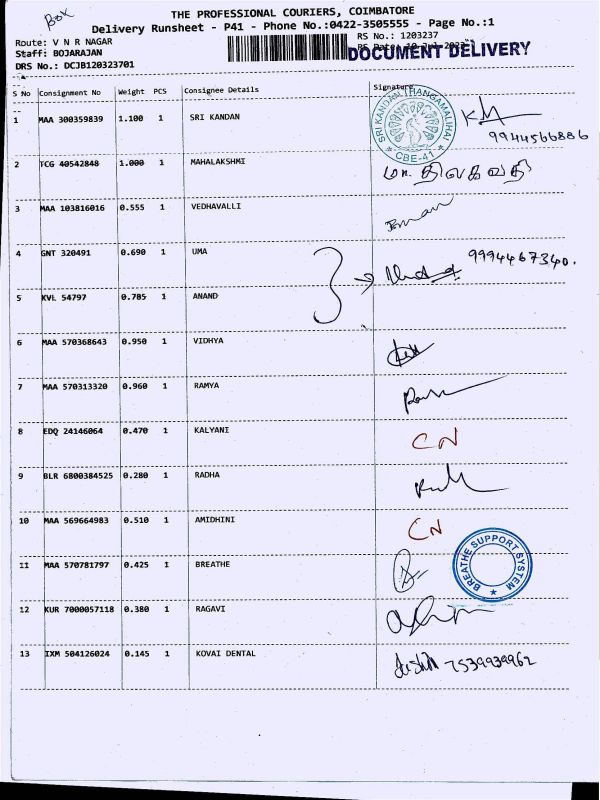 Box
THE PROFESSIONAL COURIERS, COIMBATORE
Delivery Runsheet - P41 - Phone No.:0422-3505555 - Page No.:1
Route: V N R NAGAR
RS No.: 1203237
Staff: BOJARAJAN
DOCUMENT DELIVERY
DRS No.: DCJB120323701
S No Consignment No Weight PCS Consignee Details Signature
1 MAA 300359839 1.100 1 SRI KANDAN
SRI KANDAN THANGAMALIHAI
CBE-41
9944566886
2 TCG 40542848 1.000 1 MAHALAKSHMI மா. திலகவதி
3 MAA 103816016 0.555 1 VEDHAVALLI
4 GNT 320491 0.690 1 UMA 9994467340.
5 KVL 54797 0.785 1 ANAND
6 MAA 570368643 0.950 1 VIDHYA
7 MAA 570313320 0.960 1 RAMYA
8 EDQ 24146064 0.470 1 KALYANI CN
9 BLR 6800384525 0.280 1 RADHA
10 MAA 569664983 0.510 1 AMIDHINI CN
11 MAA 570781797 0.425 1 BREATHE
BREATHE SUPPORT SYSTEM
12 KUR 7000057118 0.380 1 RAGAVI
13 IXM 504126024 0.145 1 KOVAI DENTAL 7539939962